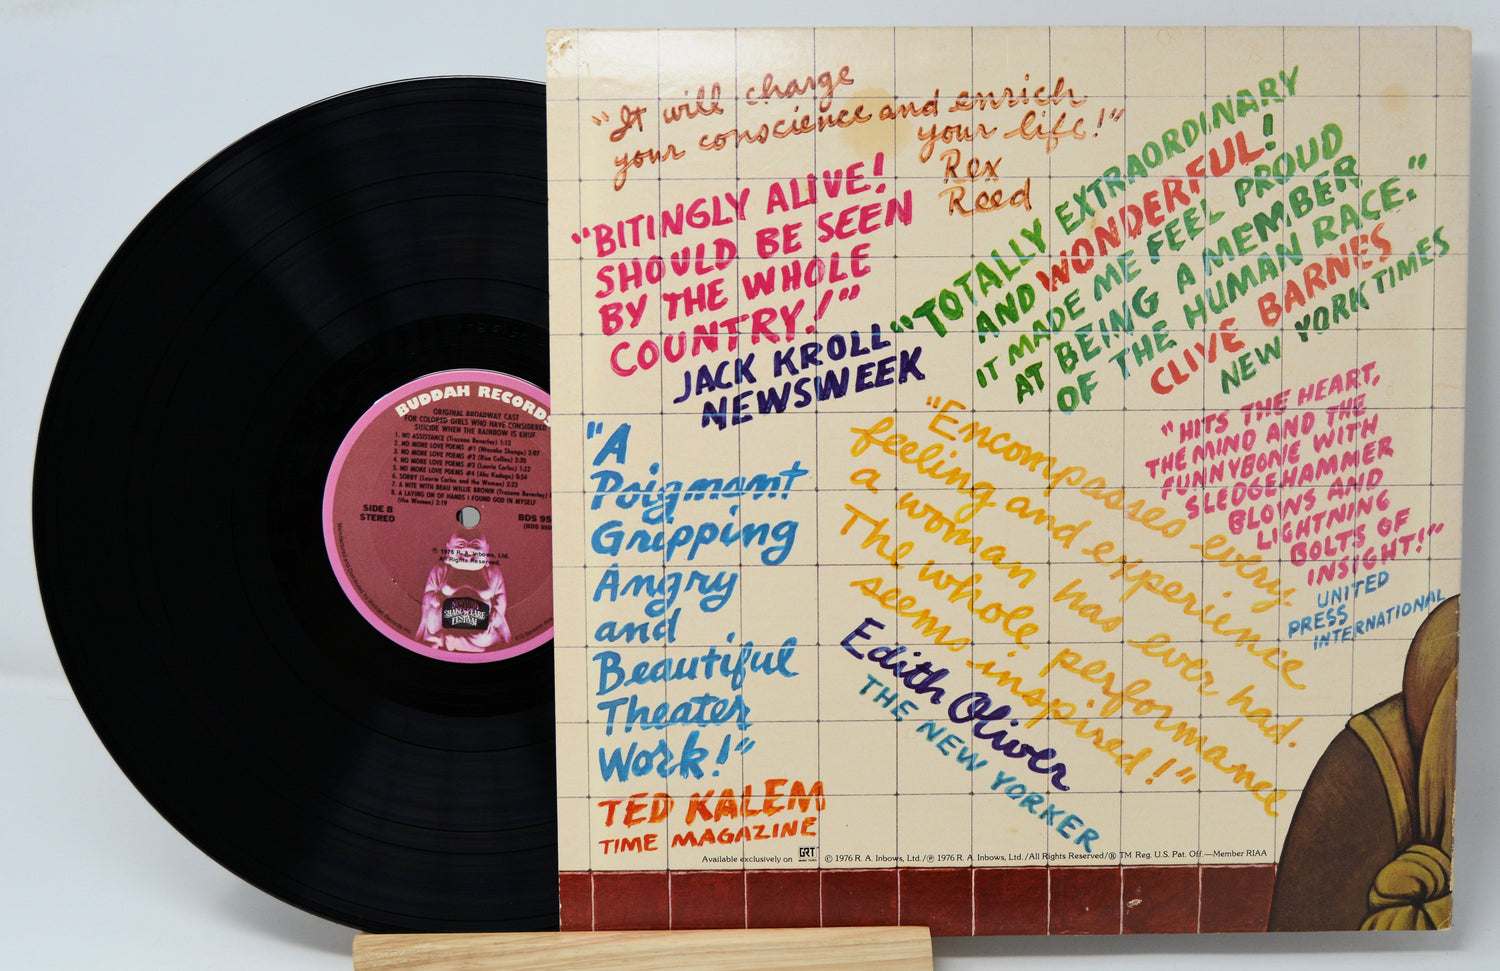 BUDDAH RECORDS
ORIGINAL BROADWAY CAST
FOR COLORED GIRLS WHO HAVE CONSIDERED
SUICIDE WHEN THE RAINBOW IS ENUF
1. NO ASSISTANCE (Trazana Beverley) 1:13
2. NO MORE LOVE POEMS #1 (Ntozake Shange) 2:07
3. NO MORE LOVE POEMS #2 (Rise Collins) 2:30
4. NO MORE LOVE POEMS #3 (Laurie Carlos) 1:52
5. NO MORE LOVE POEMS #4 (Aku Kadogo) 5:54
6. SORRY (Laurie Carlos and the Women) 3:23
7. A NITE WITH BEAU WILLIE BROWN (Trazana Beverley)
8. A LAYING ON OF HANDS I FOUND GOD IN MYSELF
(the Women) 3:19
SIDE B
STEREO
BDS 95
(BDS 950
℗ 1976 R. A. Inbows, Ltd.
All Rights Reserved.
SHAKESPEARE
FESTIVAL
Manufactured and Distributed by Buddah Records Inc.
"It will charge
your conscience and enrich
your life!"
Rex
Reed
"BITINGLY ALIVE!
SHOULD BE SEEN
BY THE WHOLE
COUNTRY!"
JACK KROLL
NEWSWEEK
"TOTALLY EXTRAORDINARY
AND WONDERFUL!
IT MADE ME FEEL PROUD
AT BEING A MEMBER
OF THE HUMAN RACE."
CLIVE BARNES
NEW YORK TIMES
"A
Poigmant
Gripping
Angry
and
Beautiful
Theater
Work!"
TED KALEM
TIME MAGAZINE
"Encompasses every
feeling and experience
a woman has ever had.
The whole performance
seems inspired!"
Edith Oliver
THE NEW YORKER
"HITS THE HEART,
THE MIND AND THE
FUNNYBONE WITH
SLEDGEHAMMER
BLOWS AND
LIGHTNING
BOLTS OF
INSIGHT!"
UNITED
PRESS
INTERNATIONAL
Available exclusively on GRT © 1976 R. A. Inbows, Ltd./℗ 1976 R. A. Inbows, Ltd. /All Rights Reserved/® TM Reg. U.S. Pat. Off.—Member RIAA